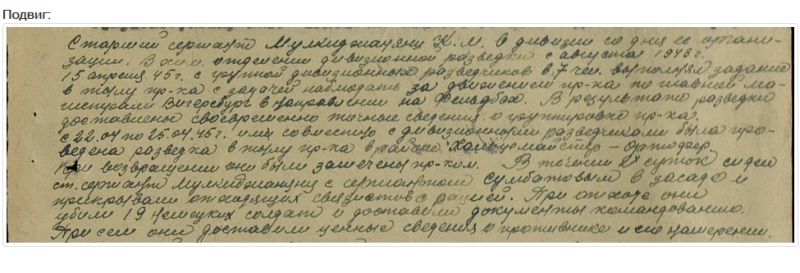 Подвиг:
Старший сержант Мулкиджанянц К.М. в дивизии со дня ее органи-
зации. В отделении дивизионной разведки с августа 1943 г.
15 апреля 45 г. с группой дивизионных разведчиков в 7 чел. выполнял задание
в тылу пр-ка с задачей наблюдать за движением пр-ка по главной ма-
гистрали в направлении на Фельдбах. В результате разведки
доставлены своевременно точные сведения о группировке пр-ка.
с 22.04 по 25.04.45 г. ими совместно с дивизионными разведчиками была про-
ведена разведка в тылу пр-ка в районе
При возвращении они были замечены пр-ком. В течении 2х суток сидел
ст. сержант Мулкиджанянц с сержантом Сумбатовым в засаде и
прикрывали отходящих связистов с рацией. При отходе они
убили 19 немецких солдат и доставили документы командованию.
При сем они доставили ценные сведения о противнике и его намерении.